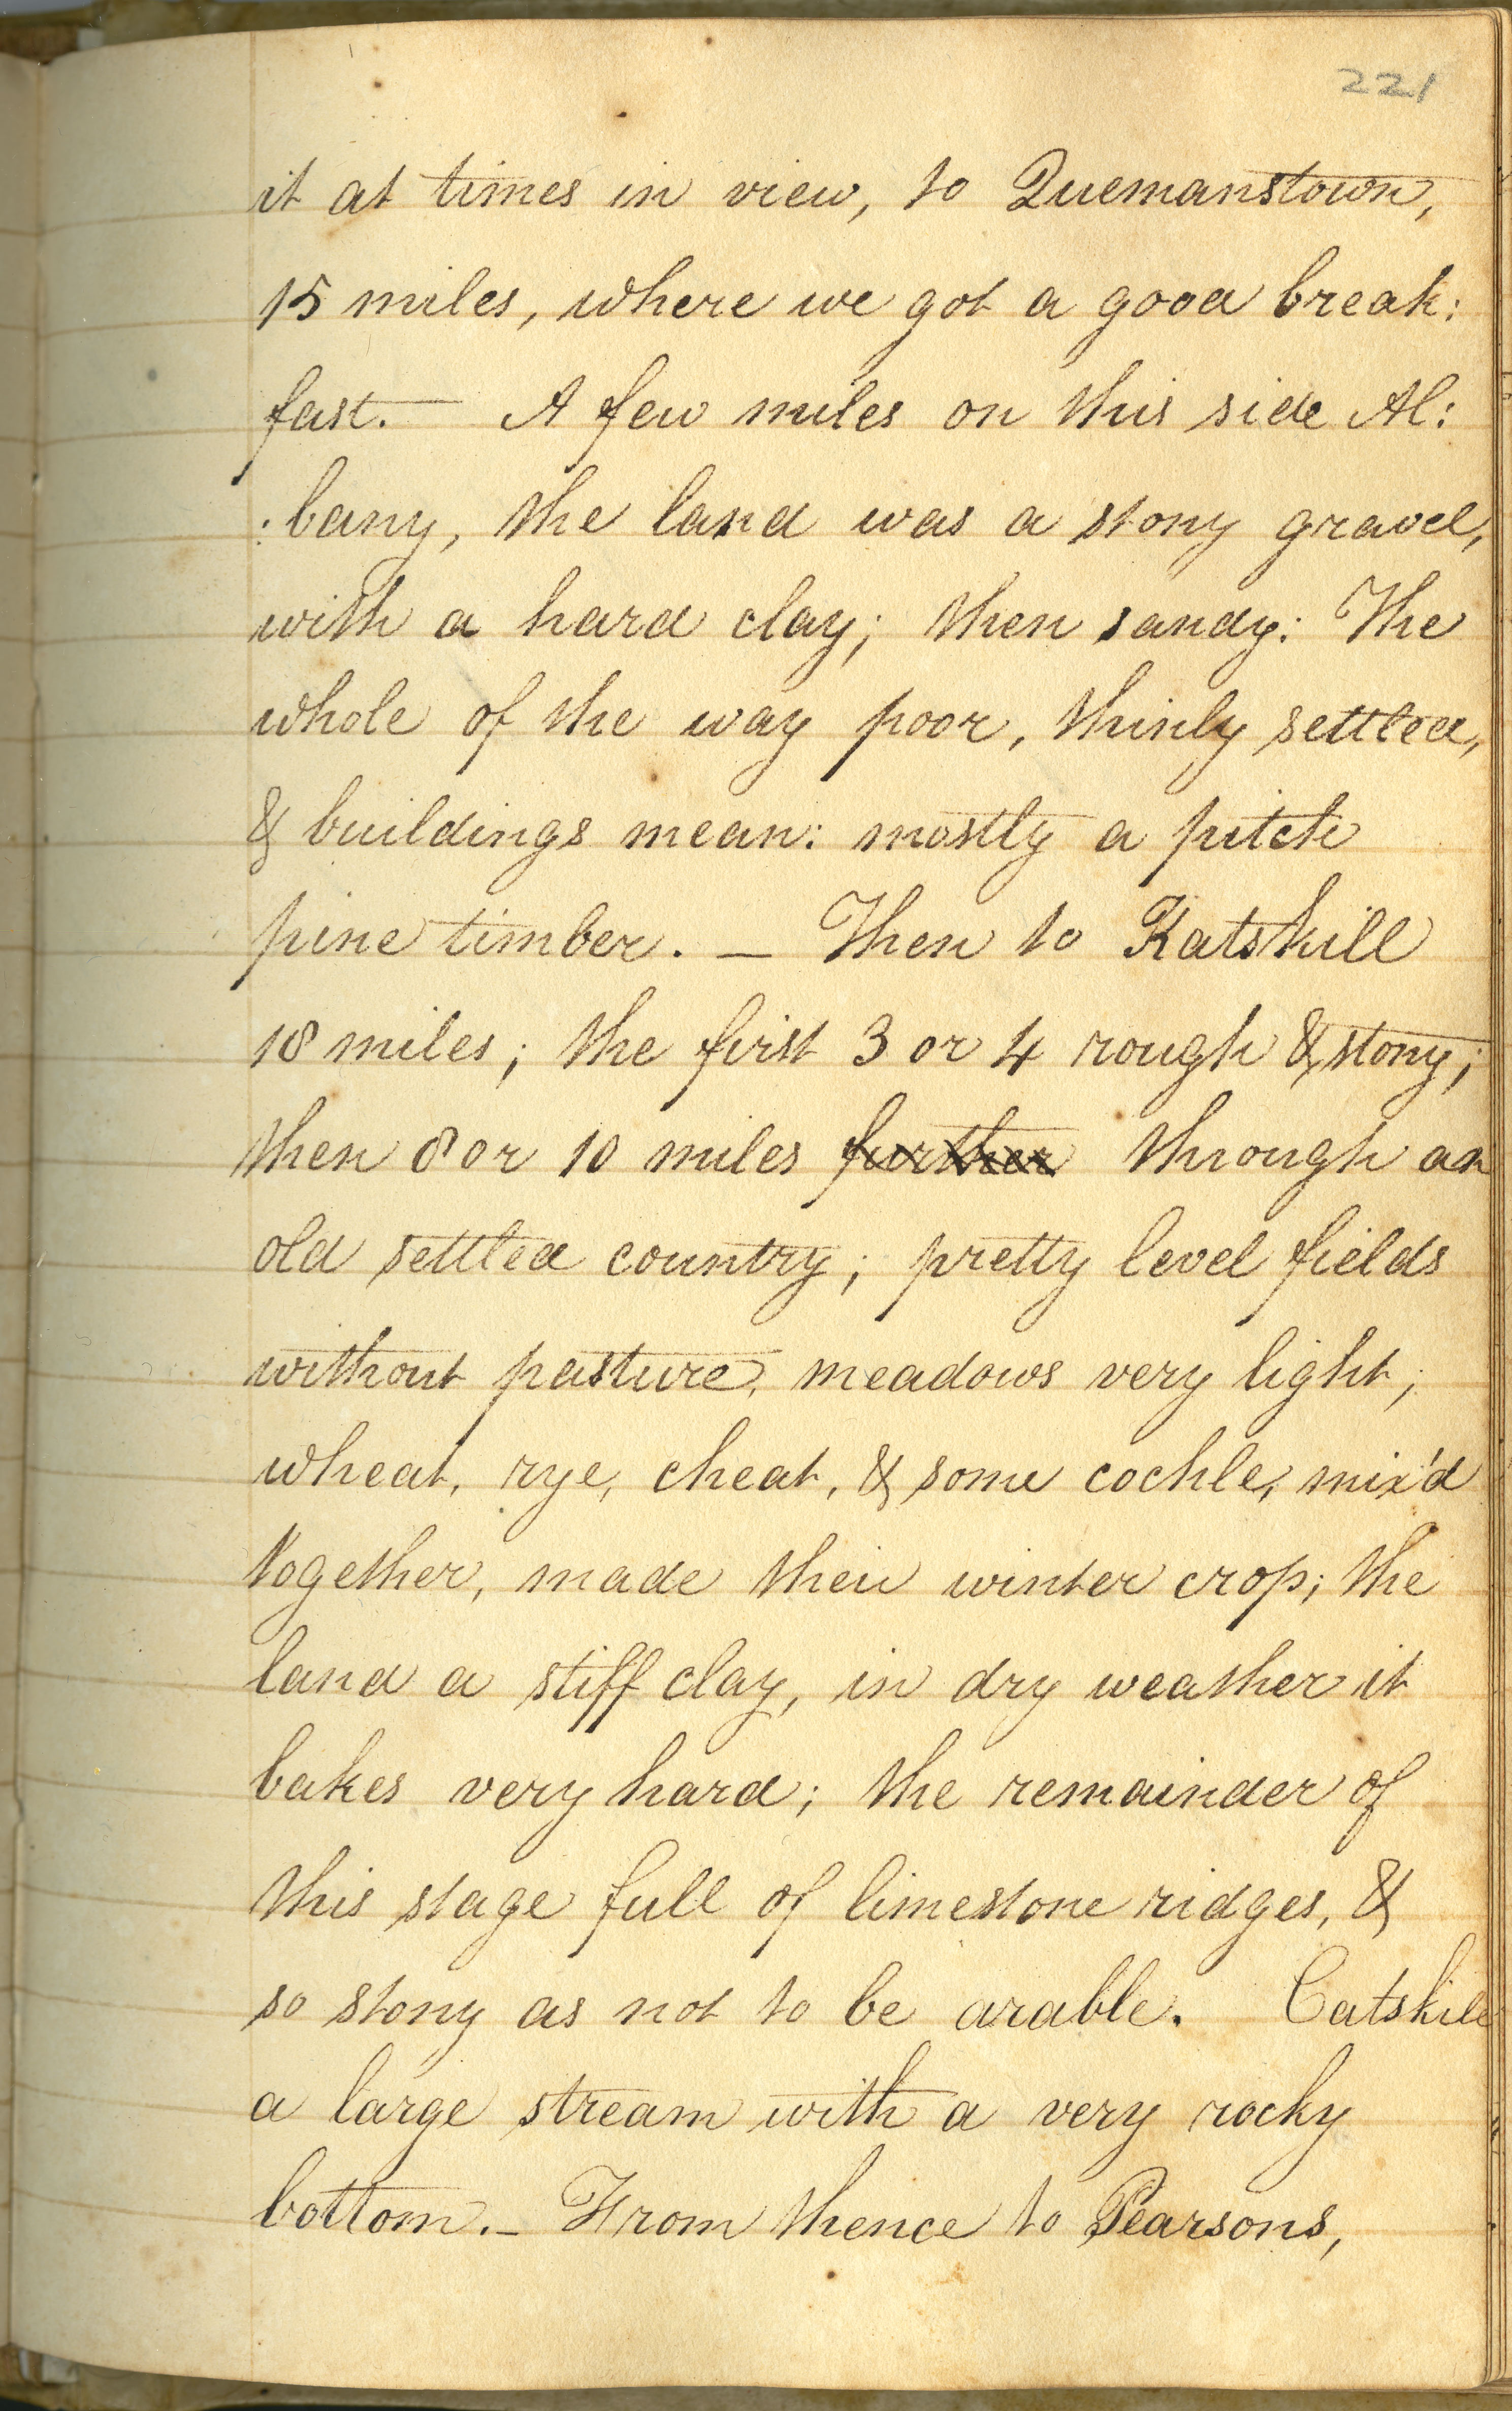 221
it at times in view, to Quemanstown,
15 miles, where we got a good break:
fast. — A few miles on this side Al:
:bany, the land was a stony gravel,
with a hard clay; then sandy: The
whole of the way poor, thinly settled,
& buildings mean: mostly a pitch
pine timber. — Then to Katskill
18 miles; the first 3 or 4 rough & stony;
then 8 or 10 miles further through an
old settled country; pretty level fields
without pasture, meadows very light;
wheat, rye, cheat, & some cockle, mix'd
together, made their winter crop; the
land a stiff clay, in dry weather it
bakes very hard; the remainder of
this stage full of limestone ridges, &
so stony as not to be arable. Catskill
a large stream with a very rocky
bottom. — From thence to Pearsons,